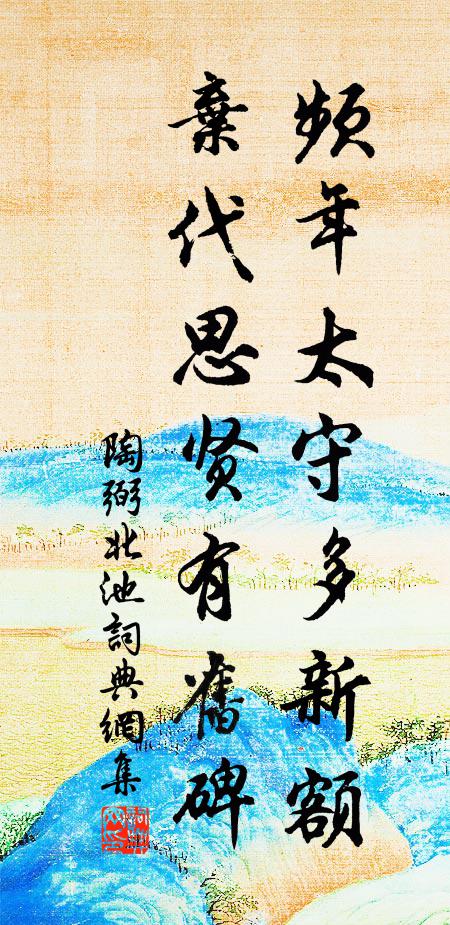 频年太守多新额
棄代思贤有舊碑
陶弼北池詞典網集